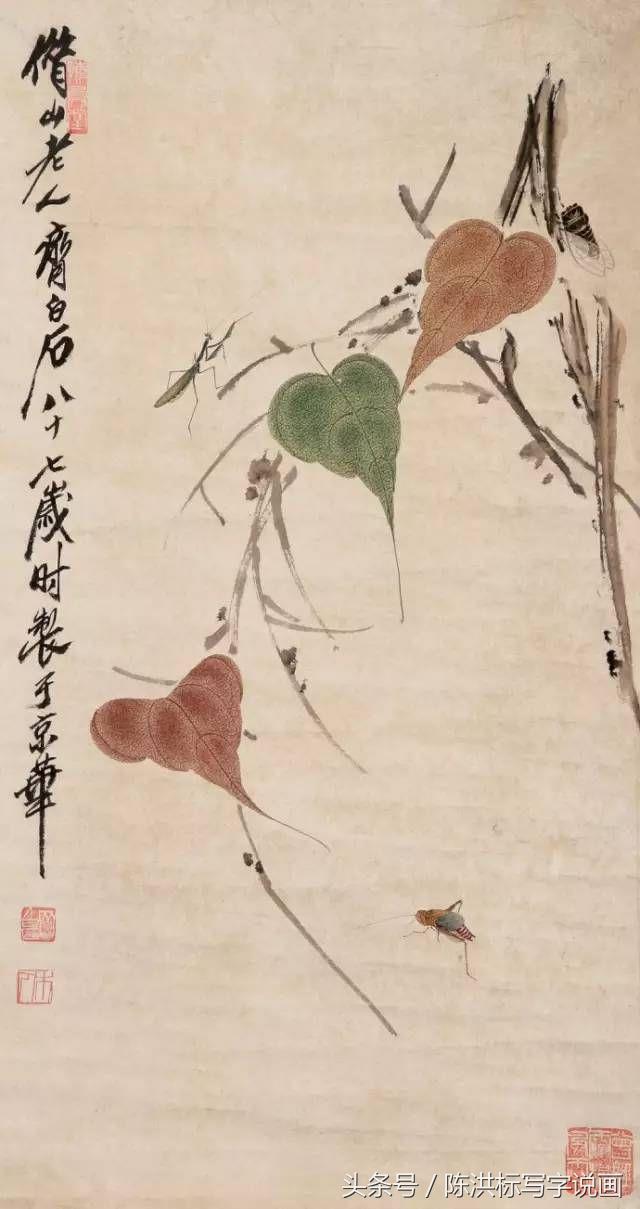 借山老人齊白石八十七歲时製于京華
头条号 / 陈洪标写字说画